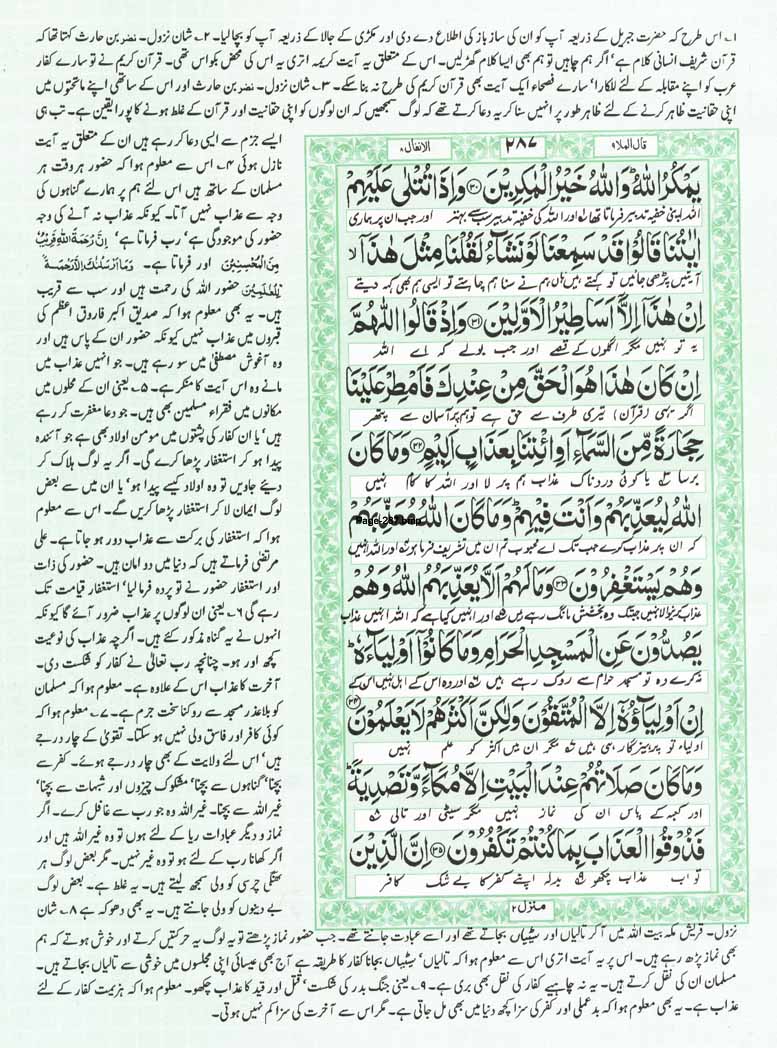 ۱۔ اس طرح کہ حضرت جبریل کے ذریعہ آپ کو ان کی ساز باز کی اطلاع دے دی اور مکڑی کے جالا کے ذریعہ آپ کو بچا لیا۔ ۲۔ شان نزول۔ نضر بن حارث کہتا تھا کہ
قرآن شریف انسانی کلام ہے' اگر ہم چاہیں تو ہم بھی ایسا کلام گھڑلیں۔ اس کے متعلق یہ آیت کریمہ اتری یہ اس کی محض بکواس تھی۔ قرآن کریم نے تو سارے کفار
عرب کو اپنے مقابلہ کے لئے للکارا' سارے فصحاء ایک آیت بھی قرآن کریم کی طرح نہ بنا سکے۔ ۳۔ شان نزول۔ نضر بن حارث اور اس کے ساتھی اپنے ماتحتوں میں
اپنی حقانیت ظاہر کرنے کے لئے ظاہر طور پر انہیں سنا کر یہ دعا کرتے تھے کہ لوگ سمجھیں کہ ان لوگوں کو اپنی حقانیت اور قرآن کے غلط ہونے کا پورا یقین ہے۔ تب ہی
قال الملا۹
۲۸۷
الانفال۸
یَمْكُرُ اللّٰهُ ؕ وَ اللّٰهُ خَیْرُ الْمٰكِرِیْنَ ۝۳۰ وَ اِذَا تُتْلٰی عَلَیْهِمْ
اللہ اپنی خفیہ تدبیر فرماتا تھا اور اللہ کی خفیہ تدبیر سب سے بہتر اور جب ان پر ہماری
اٰیٰتُنَا قَالُوْا قَدْ سَمِعْنَا لَوْ نَشَآءُ لَقُلْنَا مِثْلَ هٰذَاۤ ۙ
آیتیں پڑھی جائیں تو کہتے ہیں ہاں ہم نے سنا ہم چاہتے تو ایسی ہم بھی کہہ دیتے
اِنْ هٰذَاۤ اِلَّاۤ اَسَاطِیْرُ الْاَوَّلِیْنَ ۝۳۱ وَ اِذْ قَالُوا اللّٰهُمَّ
یہ تو نہیں مگر اگلوں کے قصے اور جب بولے کہ اے اللہ
اِنْ كَانَ هٰذَا هُوَ الْحَقَّ مِنْ عِنْدِكَ فَاَمْطِرْ عَلَیْنَا
اگر یہی (قرآن) تیری طرف سے حق ہے تو ہم پر آسمان سے پتھر
حِجَارَةً مِّنَ السَّمَآءِ اَوِ ائْتِنَا بِعَذَابٍ اَلِیْمٍ ۝۳۲ وَ مَا كَانَ
برسا یا کوئی دردناک عذاب ہم پر لا اور اللہ کا کام نہیں
اللّٰهُ لِیُعَذِّبَهُمْ وَ اَنْتَ فِیْهِمْ ؕ وَ مَا كَانَ اللّٰهُ مُعَذِّبَهُمْ
Page-287.bmp
کہ ان پر عذاب کرے جب تک اے محبوب تم ان میں تشریف فرما ہو اور اللہ انہیں
وَ هُمْ یَسْتَغْفِرُوْنَ ۝۳۳ وَ مَا لَهُمْ اَلَّا یُعَذِّبَهُمُ اللّٰهُ وَ هُمْ
عذاب کرنے والا نہیں جبتک وہ بخشش مانگ رہے ہیں اور انہیں کیا ہے کہ اللہ انہیں عذاب
یَصُدُّوْنَ عَنِ الْمَسْجِدِ الْحَرَامِ وَ مَا كَانُوْۤا اَوْلِیَآءَهٗ ؕ
نہ کرے وہ تو مسجد حرام سے روک رہے ہیں اور وہ اس کے اہل نہیں اس کے
اِنْ اَوْلِیَآؤُهٗۤ اِلَّا الْمُتَّقُوْنَ وَ لٰكِنَّ اَكْثَرَهُمْ لَا یَعْلَمُوْنَ ۝۳۴
اولیاء تو پرہیزگار ہی ہیں مگر ان میں اکثر کو علم نہیں
وَ مَا كَانَ صَلَاتُهُمْ عِنْدَ الْبَیْتِ اِلَّا مُكَآءً وَّ تَصْدِیَةً ؕ
اور کعبہ کے پاس ان کی نماز نہیں مگر سیٹی اور تالی
فَذُوْقُوا الْعَذَابَ بِمَا كُنْتُمْ تَكْفُرُوْنَ ۝۳۵ اِنَّ الَّذِیْنَ
تو اب عذاب چکھو بدلہ اپنے کفر کا بے شک کافر
منزل۲
ایسے جزم سے ایسی دعا کر رہے ہیں ان کے متعلق یہ آیت
نازل ہوئی ۴۔ اس سے معلوم ہوا کہ حضور ہر وقت ہر
مسلمان کے ساتھ ہیں اس لئے ہم پر ہمارے گناہوں کی
وجہ سے عذاب نہیں آتا۔ کیونکہ عذاب نہ آنے کی وجہ
حضور کی موجودگی ہے' رب فرماتا ہے' اِنَّ رَحْمَةَ اللّٰهِ قَرِیْبٌ
مِّنَ الْمُحْسِنِیْنَ اور فرماتا ہے۔ وَمَا اَرْسَلْنٰكَ اِلَّا رَحْمَةً
لِّلْعٰلَمِیْنَ حضور اللہ کی رحمت ہیں اور سب سے قریب
ہیں۔ یہ بھی معلوم ہوا کہ صدیق اکبر فاروق اعظم کی
قبروں میں عذاب نہیں کیونکہ حضور ان کے پاس ہیں اور
وہ آغوش مصطفیٰ میں سو رہے ہیں۔ جو انہیں عذاب میں
مانے وہ اس آیت کا منکر ہے۔ ۵۔ یعنی ان کے محلوں میں
مکانوں میں فقراء مسلمین بھی ہیں۔ جو دعا مغفرت کر رہے
ہیں' یا ان کفار کی پشتوں میں مومن اولاد بھی ہے جو آئندہ
پیدا ہو کر استغفار پڑھا کرے گی۔ اگر یہ لوگ ہلاک کر
دیئے جاویں تو وہ اولاد کیسے پیدا ہو' یا ان میں سے بعض
لوگ ایمان لا کر استغفار پڑھا کریں گے۔ اس سے معلوم
ہوا کہ استغفار کی برکت سے عذاب دور ہو جاتا ہے۔ علی
مرتضیٰ فرماتے ہیں کہ دنیا میں دو امان ہیں۔ حضور کی ذات
اور استغفار حضور نے تو پردہ فرما لیا' استغفار قیامت تک
رہے گی ۶۔ یعنی ان لوگوں پر عذاب ضرور آئے گا کیونکہ
انہوں نے یہ گناہ مذکور کئے ہیں۔ اگرچہ عذاب کی نوعیت
کچھ اور ہو۔ چنانچہ رب تعالیٰ نے کفار کو شکست دی۔
آخرت کا عذاب اس کے علاوہ ہے۔ معلوم ہوا کہ مسلمان
کو بلاعذر مسجد سے روکنا سخت جرم ہے۔ ۷۔ معلوم ہوا کہ
کوئی کافر اور فاسق ولی نہیں ہو سکتا۔ تقویٰ کے چار درجے
ہیں' اس لئے ولایت کے بھی چار درجے ہوئے۔ کفر سے
بچنا' گناہوں سے بچنا' مشکوک چیزوں اور شبہات سے بچنا'
غیر اللہ سے بچنا۔ غیر اللہ وہ جو رب سے غافل کرے۔ اگر
نماز و دیگر عبادات ریا کے لئے ہوں تو وہ غیر اللہ ہیں اور
اگر کھانا رب کے لئے ہو تو وہ غیر نہیں۔ مگر بعض لوگ ہر
بھنگی چرسی کو ولی سمجھ لیتے ہیں۔ یہ غلط ہے۔ بعض لوگ
بے دینوں کو ولی جانتے ہیں۔ یہ بھی دھوکہ ہے ۸۔ شان
نزول۔ قریش مکہ بیت اللہ میں آ کر تالیاں اور سیٹیاں بجاتے تھے اور اسے عبادت جانتے تھے۔ جب حضور نماز پڑھتے تو یہ لوگ یہ حرکتیں کرتے اور خوش ہوتے کہ ہم
بھی نماز پڑھ رہے ہیں۔ اس پر یہ آیت اتری اس سے معلوم ہوا کہ تالیاں' سیٹیاں بجانا کفار کا طریقہ ہے آج بھی عیسائی اپنی مجلسوں میں خوشی سے تالیاں بجاتے ہیں۔
مسلمان ان کی نقل کرتے ہیں۔ یہ نہ چاہیے کفار کی نقل بھی بری ہے۔ ۹۔ یعنی جنگ بدر کی شکست' قتل اور قید کا عذاب چکھو۔ معلوم ہوا کہ ہزیمت کفار کے لئے
عذاب ہے۔ یہ بھی معلوم ہوا کہ بدعملی اور کفر کی سزا کچھ دنیا میں بھی مل جاتی ہے۔ مگر اس سے آخرت کی سزا کم نہیں ہوتی۔